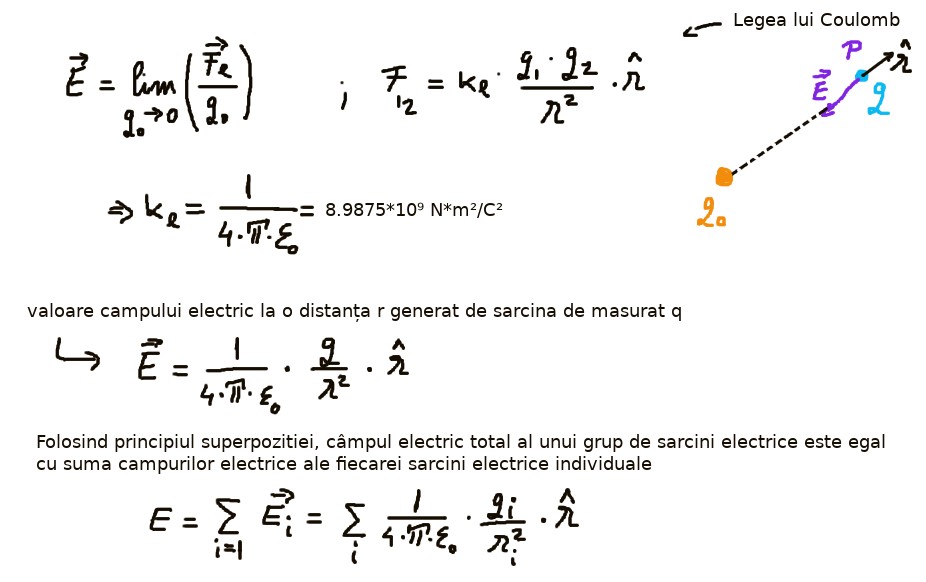 Legea lui Coulomb
E⃗ = lim q₀→0 (F⃗e/q₀) ; F₁₂ = ke · q₁·q₂/r² · r̂
P r̂
E⃗ q
q₀
⇒ ke = 1/(4·π·ε₀) = 8.9875*10⁹ N*m²/C²
valoare campului electric la o distanța r generat de sarcina de masurat q
E⃗ = 1/(4·π·ε₀) · q/r² · r̂
Folosind principiul superpozitiei, câmpul electric total al unui grup de sarcini electrice este egal
cu suma campurilor electrice ale fiecarei sarcini electrice individuale
E = Σ i=1 E⃗i = Σ i 1/(4·π·ε₀) · qi/ri² · r̂